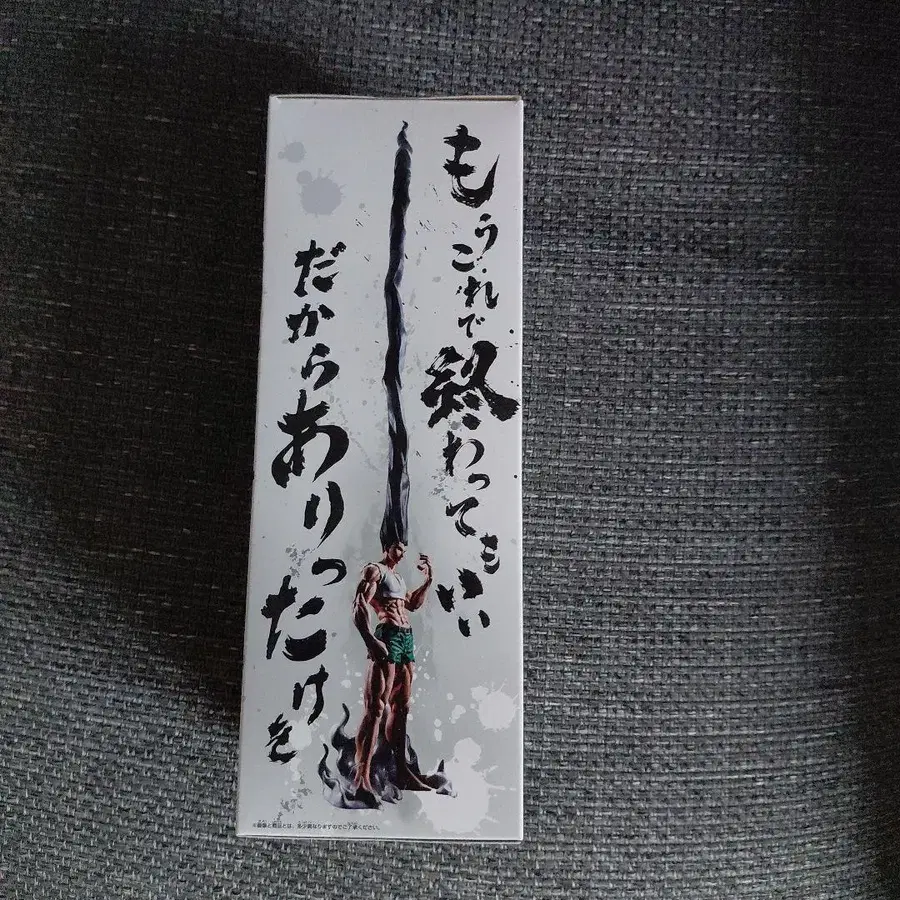 もうこれで終わってもいい
だからありったけを
※画像と商品とは、多少異なりますのでご了承ください。